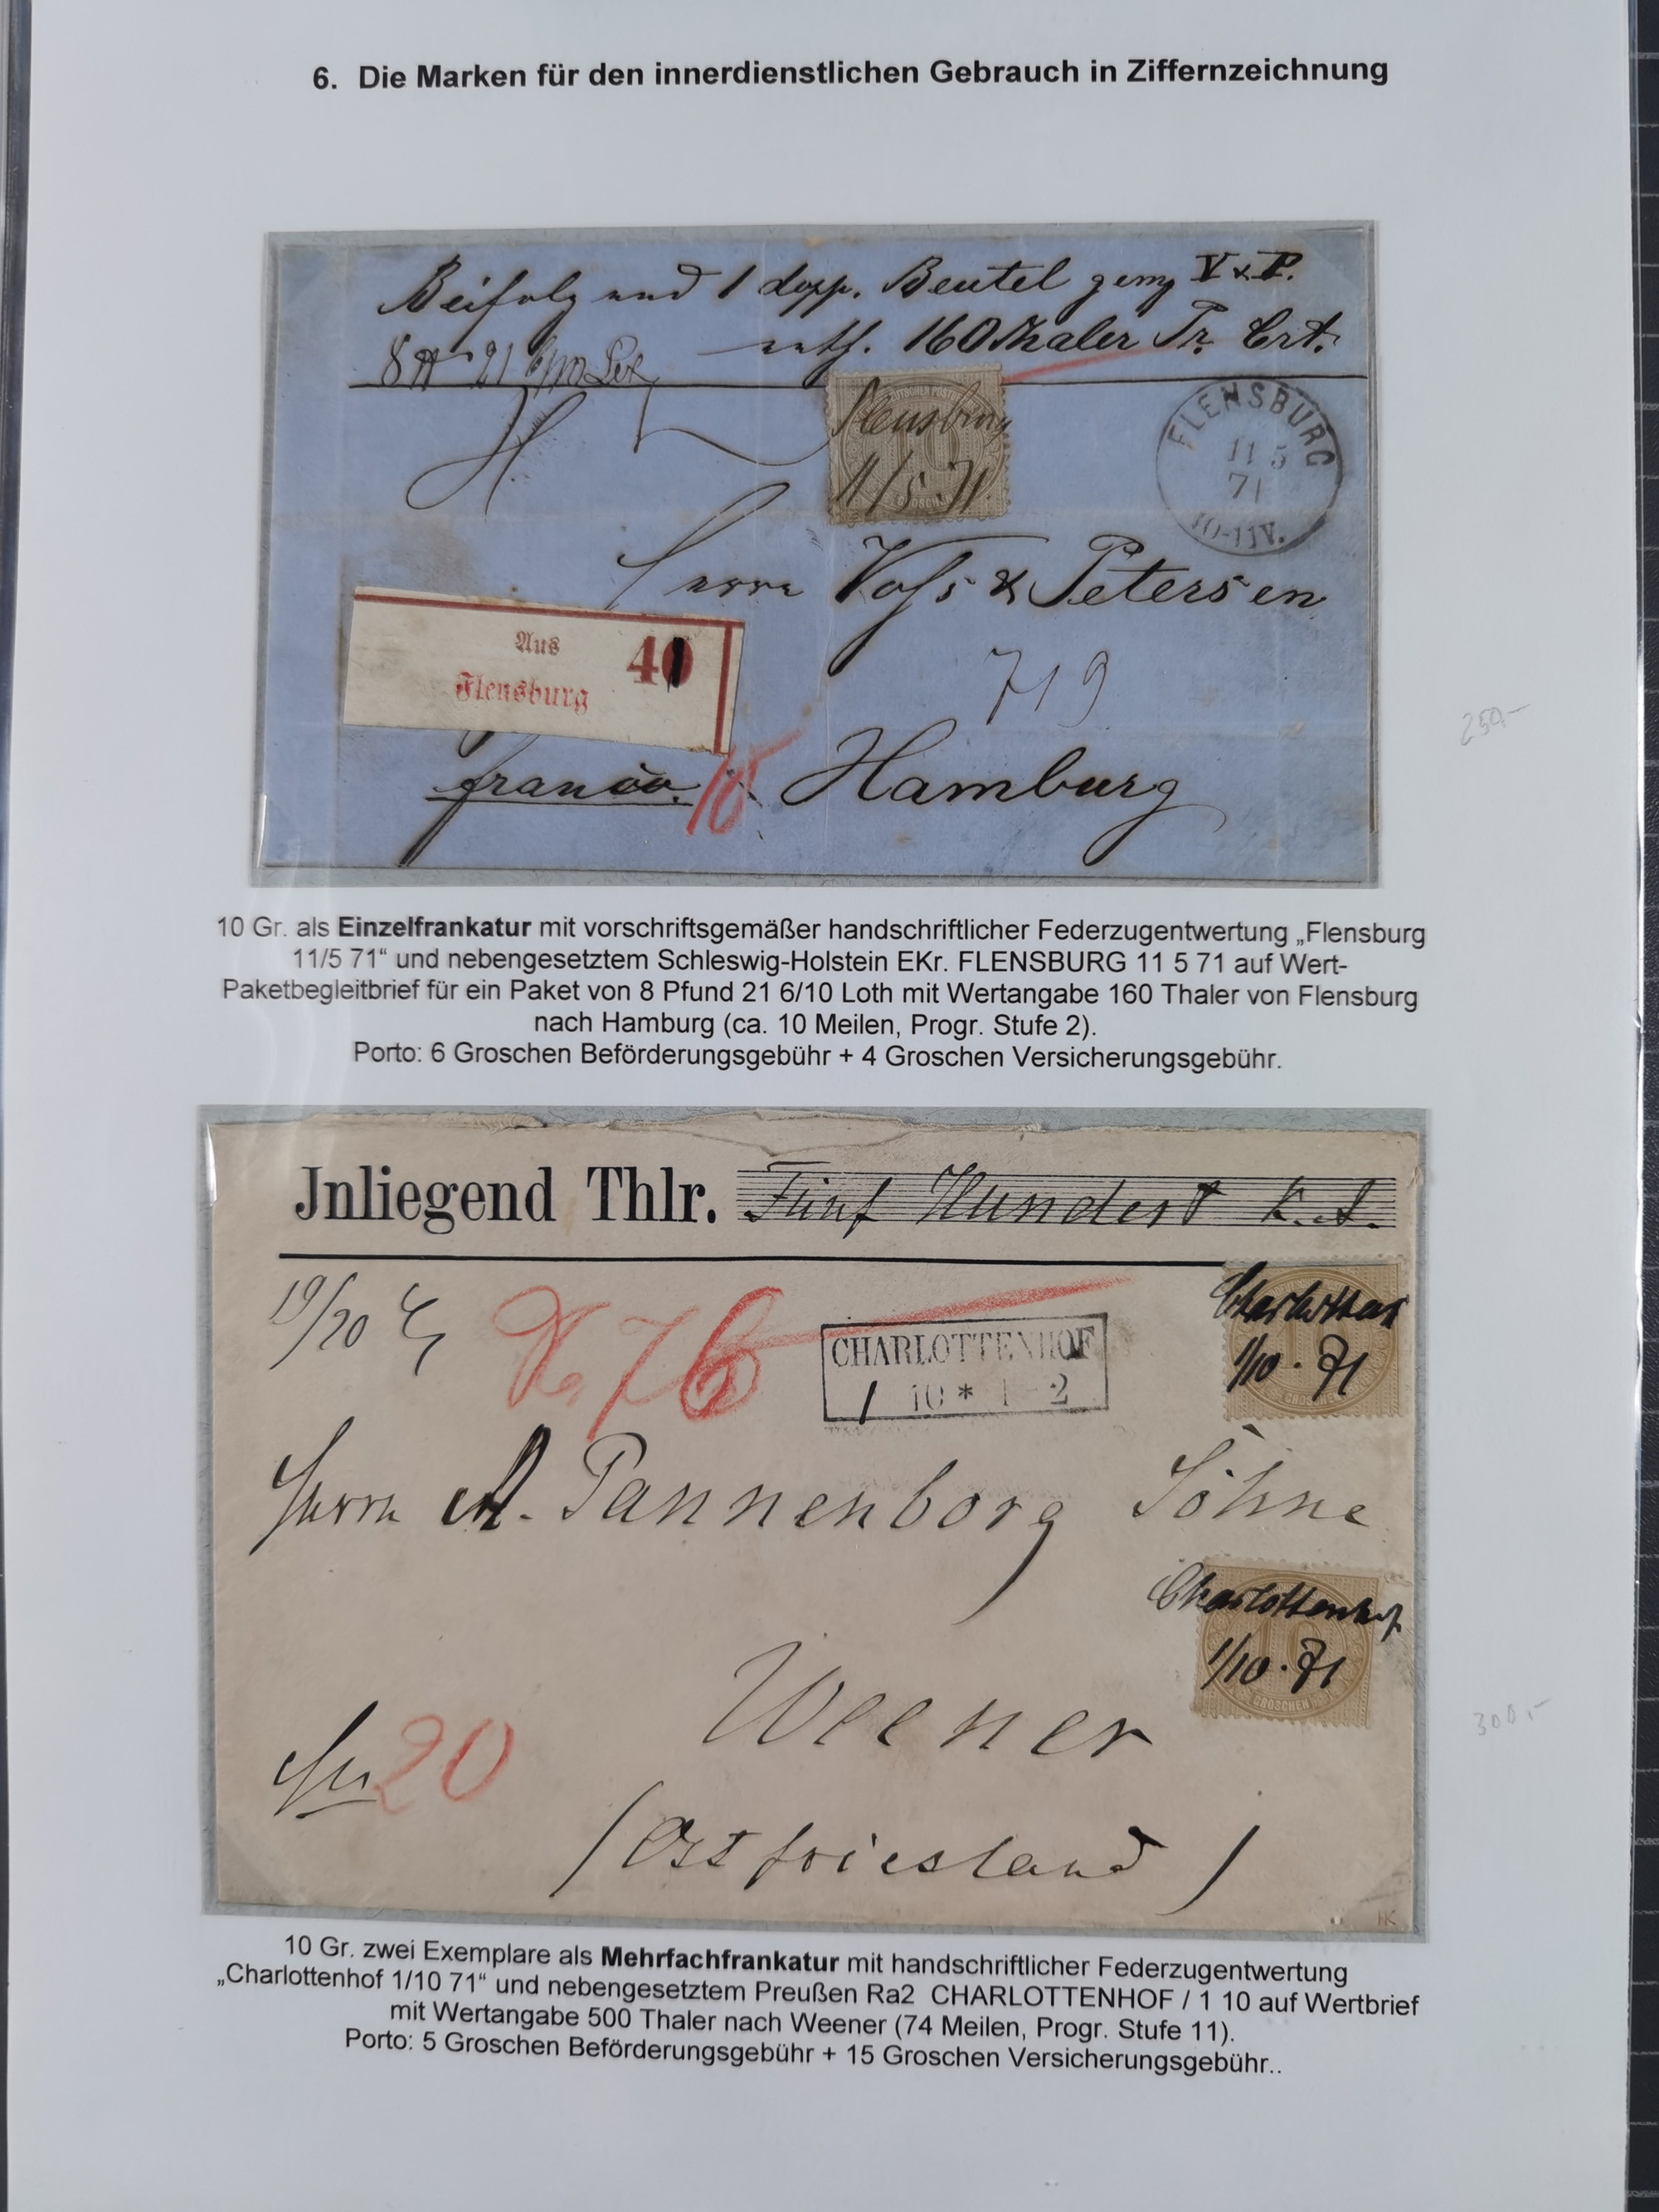 6. Die Marken für den innerdienstlichen Gebrauch in Ziffernzeichnung
Beifolg und 1 dopp. Beutel gemg V & P.
enth. 160 Thaler Pr. Crt.
8 21 6/10
Flensburg
11/5. 71.
FLENSBURG
11 5
71
10-11V.
Herrn Voss & Petersen
Aus
Flensburg
40
719
franco. 10 Hamburg
250,-
10 Gr. als Einzelfrankatur mit vorschriftsgemäßer handschriftlicher Federzugentwertung „Flensburg
11/5 71“ und nebengesetztem Schleswig-Holstein EKr. FLENSBURG 11 5 71 auf Wert-
Paketbegleitbrief für ein Paket von 8 Pfund 21 6/10 Loth mit Wertangabe 160 Thaler von Flensburg
nach Hamburg (ca. 10 Meilen, Progr. Stufe 2).
Porto: 6 Groschen Beförderungsgebühr + 4 Groschen Versicherungsgebühr.
Jnliegend Thlr. Fünf Hundert
19/20
No 76
CHARLOTTENHOF
1 10 * 1-2
Charlottenhof
1/10. 71
GROSCHEN
Herrn A. Pannenborg Söhne
Charlottenhof
1/10. 71
10
GROSCHEN
Weener
20
(Ostfriesland)
300,-
HK
10 Gr. zwei Exemplare als Mehrfachfrankatur mit handschriftlicher Federzugentwertung
„Charlottenhof 1/10 71“ und nebengesetztem Preußen Ra2 CHARLOTTENHOF / 1 10 auf Wertbrief
mit Wertangabe 500 Thaler nach Weener (74 Meilen, Progr. Stufe 11).
Porto: 5 Groschen Beförderungsgebühr + 15 Groschen Versicherungsgebühr..